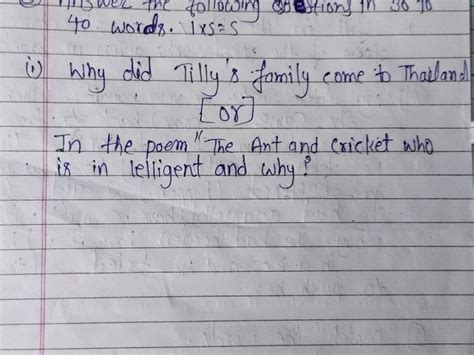 Answer the following questions in 30 to
40 words. 1x5=5
i) Why did Tilly's family come to Thailand
[or]
In the poem "The Ant and Cricket who
is in lelligent and why?